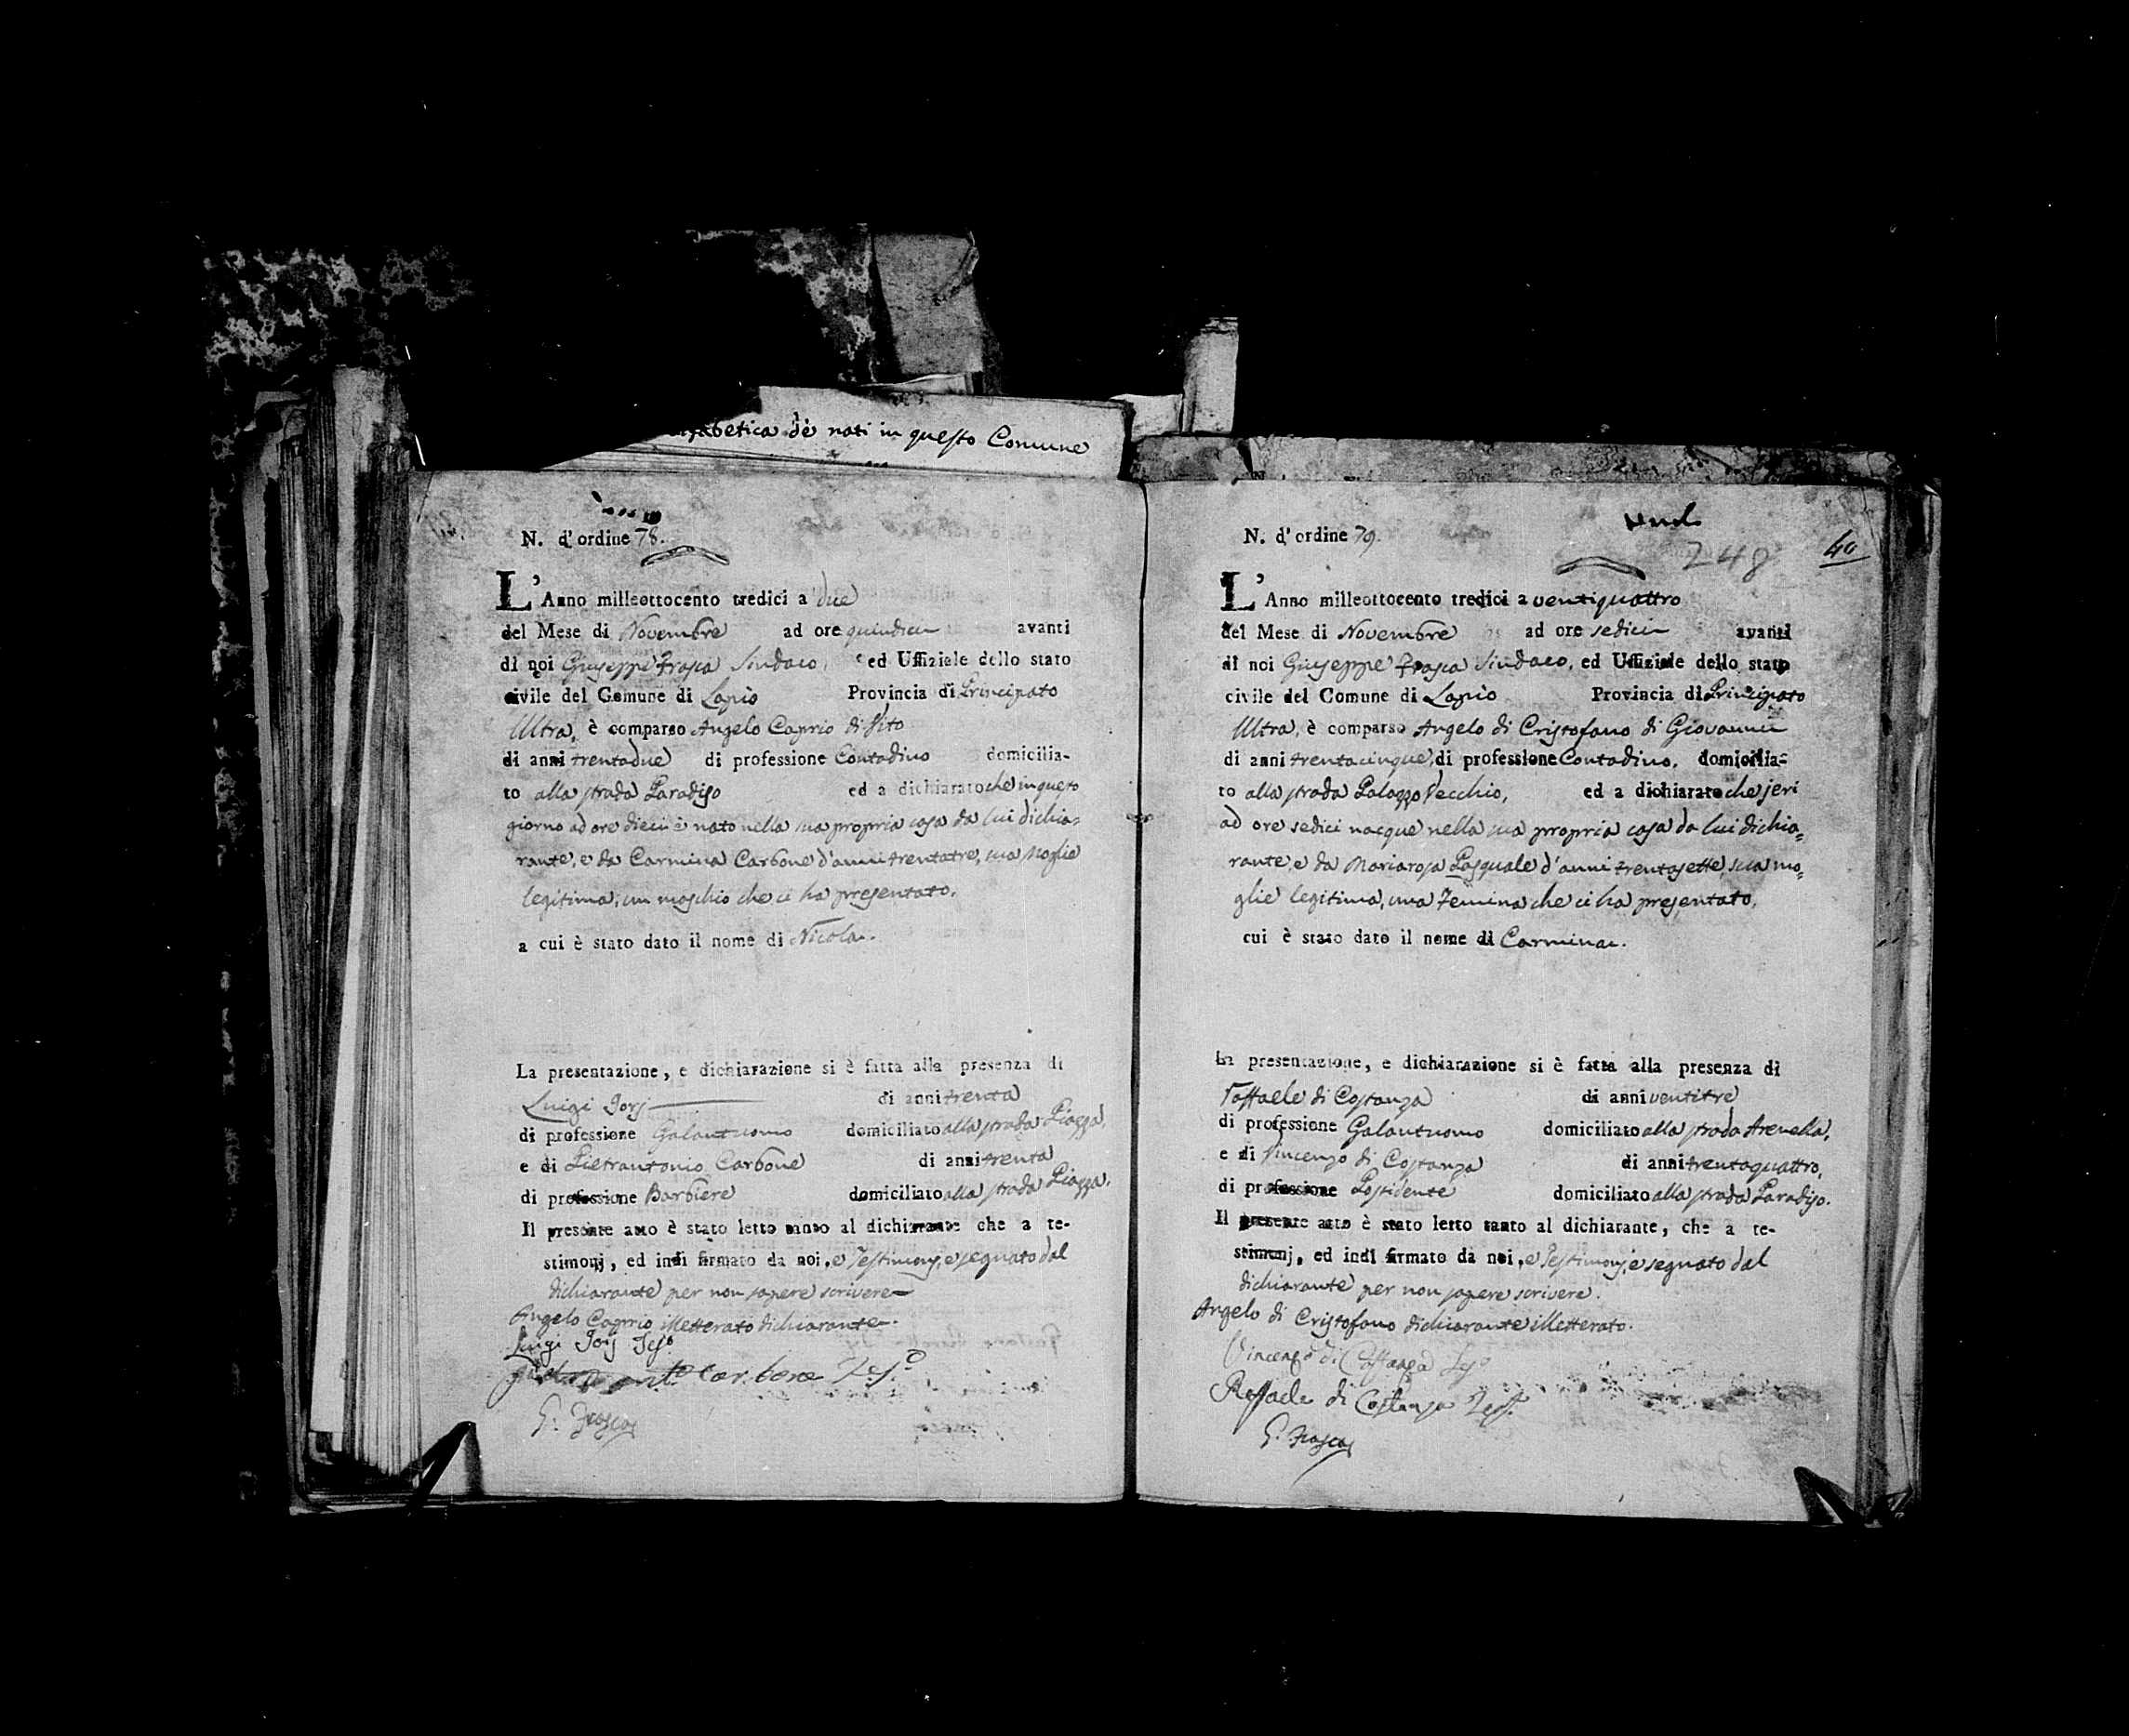 de' nati in questo Comune
N. d'ordine 78.
L'Anno milleottocento tredici a due
del Mese di Novembre ad ore quindici avanti
di noi Giuseppe Frasca Sindaco, ed Uffiziale dello stato
civile del Comune di Lapio Provincia di Principato
Ultra, è comparso Angelo Caprio di Vito
di anni trentadue di professione Contadino domicilia-
to alla strada Paradiso ed a dichiarato che in questo
giorno ad ore dieci è nato nella sua propria casa da lui dichia=
rante, e da Carmina Carbone d'anni trentatre, sua moglie
legitima, un maschio che ci ha presentato.
a cui è stato dato il nome di Nicola.
La presentazione, e dichiarazione si è fatta alla presenza di
Luigi Jorj di anni trenta
di professione Galantuomo domiciliato alla strada Piazza,
e di Pietrantonio Carbone di anni trenta
di professione Barbiere domiciliato alla strada Piazza.
Il presente atto è stato letto tanto al dichiarante che a te-
stimonj, ed indi firmato da noi, e Testimonj, e segnato dal
dichiarante per non sapere scrivere
Angelo Caprio illetterato dichiarante.
Luigi Jorj Tes.º
Carbone Tes.º
G. Frasca
N. d'ordine 79.
248
40
L'Anno milleottocento tredici a ventiquattro
del Mese di Novembre ad ore sedici avanti
di noi Giuseppe Frasca Sindaco, ed Uffiziale dello stato
civile del Comune di Lapio Provincia di Principato
Ultra, è comparso Angelo di Cristofano di Giovanni
di anni trentacinque, di professione Contadino, domicilia-
to alla strada Palazzo Vecchio, ed a dichiarato che jeri
ad ore sedici nacque nella sua propria casa da lui dichia=
rante, e da Mariarosa Pasquale d'anni trentasette, sua mo=
glie legitima, una Femina che ci ha presentato,
cui è stato dato il nome di Carmina.
La presentazione, e dichiarazione si è fatta alla presenza di
Raffaele di Costanza di anni ventitre
di professione Galantuomo domiciliato alla strada Arenella,
e di Vincenzo di Costanza di anni trentaquattro,
di professione Possidente domiciliato alla strada Paradiso.
Il presente atto è stato letto tanto al dichiarante, che a te-
stimonj, ed indi firmato da noi, e Testimonj, e segnato dal
dichiarante per non sapere scrivere.
Angelo di Cristofano dichiarante illetterato.
Vincenzo di Costanza Tes.º
Raffaele di Costanza Test.º
G. Frasca